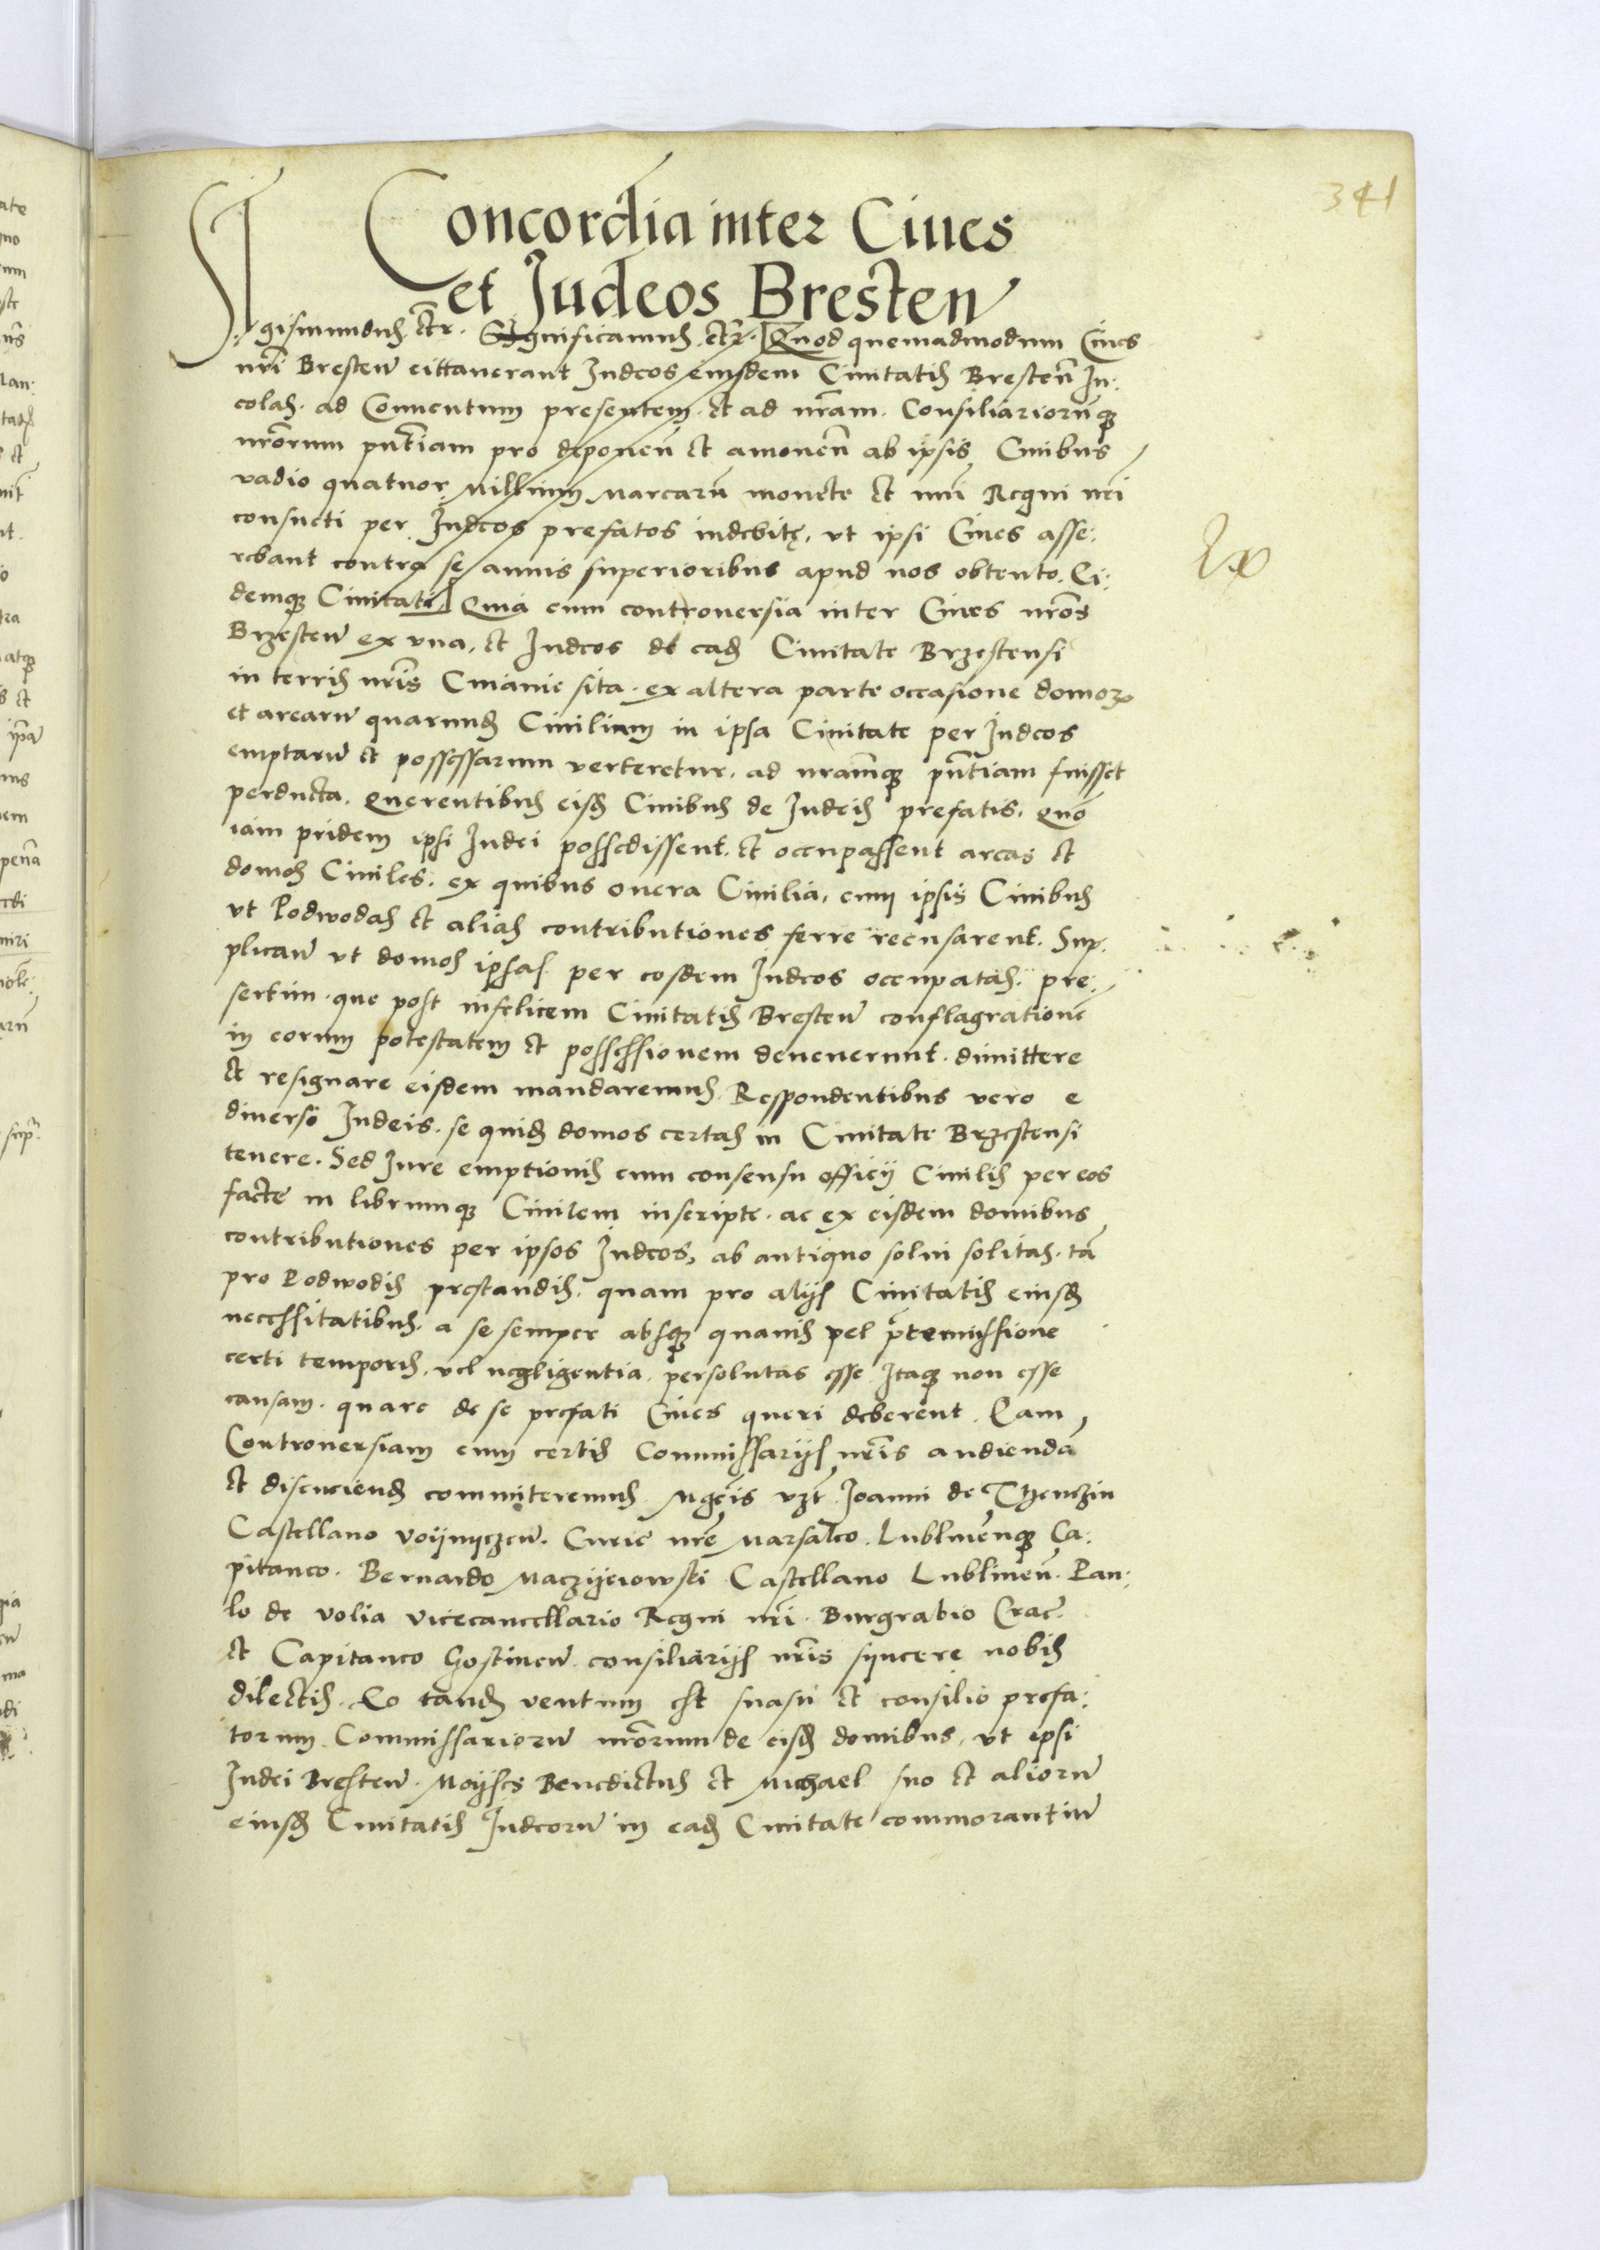 341
Concordia inter Ciues
et Judeos Bresten
Sigismundus etc. Significamus etc. Quod quemadmodum Ciues
nri Bresten cittauerant Judeos eiusdem Ciuitatis Bresten Jn:
colas. ad Conuentum presentem. et ad nram. Consiliariorumq
nrorum pntiam pro deponen et amouen ab ipsis Ciuibus
vadio quatuor Millium Marcarum monete et nui Regni nri
consueti per Judeos prefatos indebite, vt ipsi Ciues asse:
rebant contra se annis superioribus apud nos obtento. Ei:
demq Ciuitati. Quia cum controuersia inter Ciues nros
Brzesten ex vna, et Judeos de ead Ciuitate Brzestensi
in terris nris Cuiauie sita. ex altera parte occasione domorum
et arearum quarund Ciuilium in ipsa Ciuitate per Judeos
emptarum et possessarum verteretur, ad nramq pntiam fuisset
perducta. Querentibus eisd Ciuibus de Judeis prefatis. Quo
iam pridem ipsi Judei possedissent. et occupassent areas et
domos Ciuiles. ex quibus onera Ciuilia, cum ipsis Ciuibus
vt Podwodas et alias contributiones ferre recusarent. Sup:
plican vt domos ipsas per eosdem Judeos occupatas. pre:
sertim. que post infelicem Ciuitatis Bresten conflagratione
in eorum potestatem et possessionem deuenerunt. dimittere
et resignare eisdem mandaremus. Respondentibus vero e
diuerso Judeis. se quid domos certas in Ciuitate Brzestensi
tenere. Sed Jure emptionis cum consensu officij Ciuilis per eos
facte in librumq Ciuilem inscripte. ac ex eisdem domibus
contributiones per ipsos Judeos, ab antiquo solui solitas. ta
pro Podwodis prestandis. quam pro alijs Ciuitatis eiusd
necessitatibus. a se semper absq quauis vel pretermissione
certi temporis. vel negligentia persolutas esse. Jtaq non esse
causam. quare de se prefati Ciues queri deberent. Eam
Controuersiam cum certis Commissarijs nris audienda
et discuciend committeremus. Mgcis vzt. Joanni de Thenczin
Castellano Voijnyczen. Curie nre Marsalco. Lublinenq Ca:
pitaneo. Bernardo Maczyeiowski Castellano Lublinen. Pau:
lo de Volia Vicecancellario Regni nri. Burgrabio Crac.
et Capitaneo Gostinen. consiliarijs nris syncere nobis
dilectis. Eo tand ventum est suasu et consilio prefa:
torum Commissariorum nrorum de eisd domibus, vt ipsi
Judei Bresten. Moijses Benedictus et Michael suo et aliorum
eiusd Ciuitatis Judeorum in ead Ciuitate commorantium